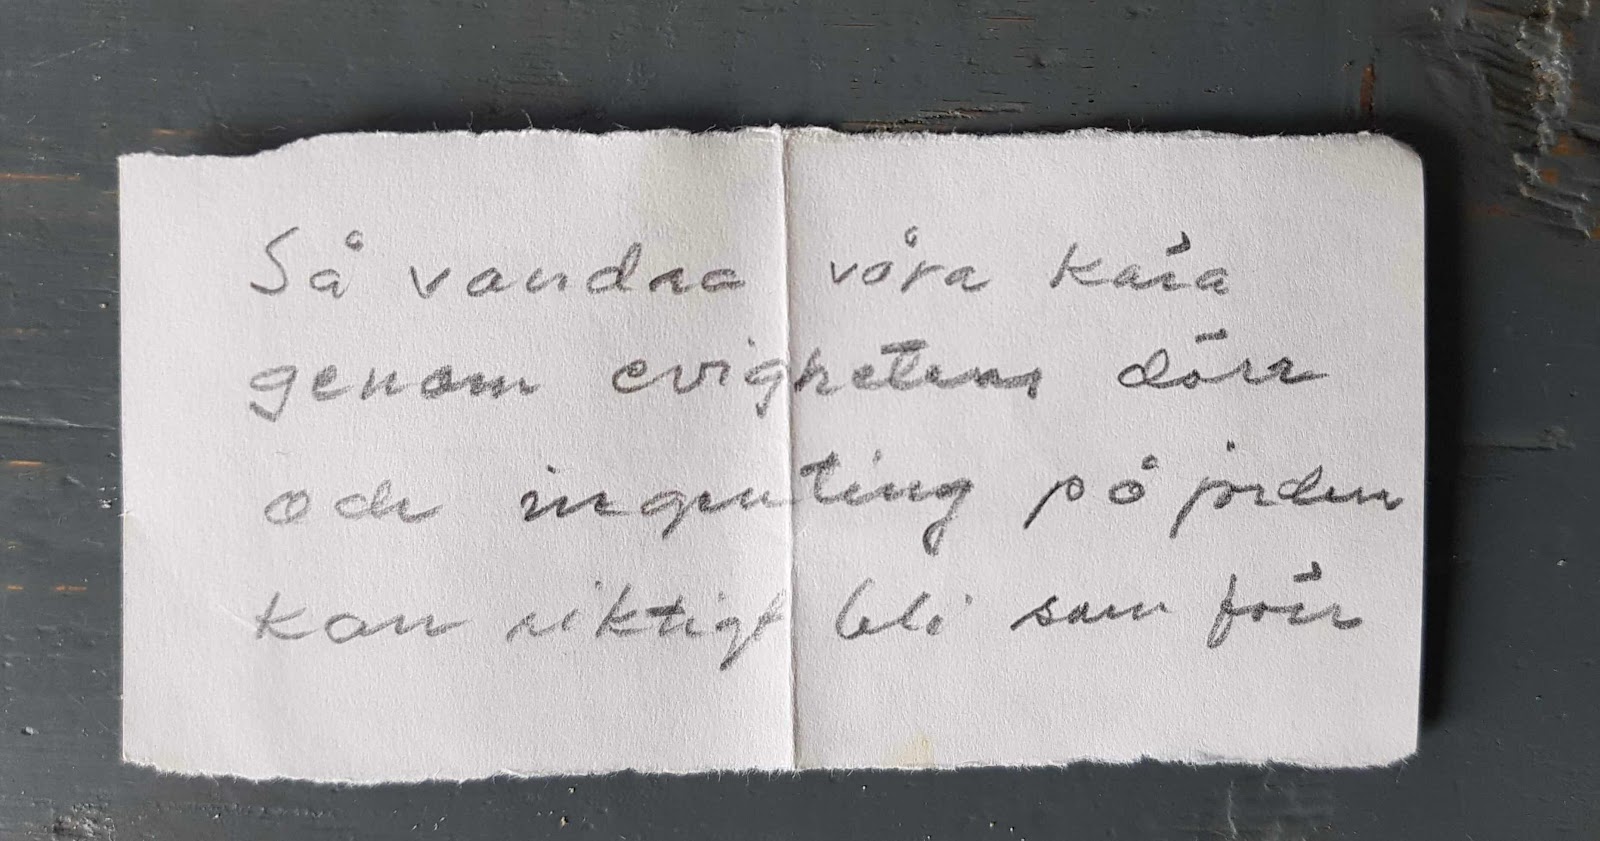 Så vandra våra kära
genom evighetens dörr
och ingenting på jorden
kan riktigt bli som förr